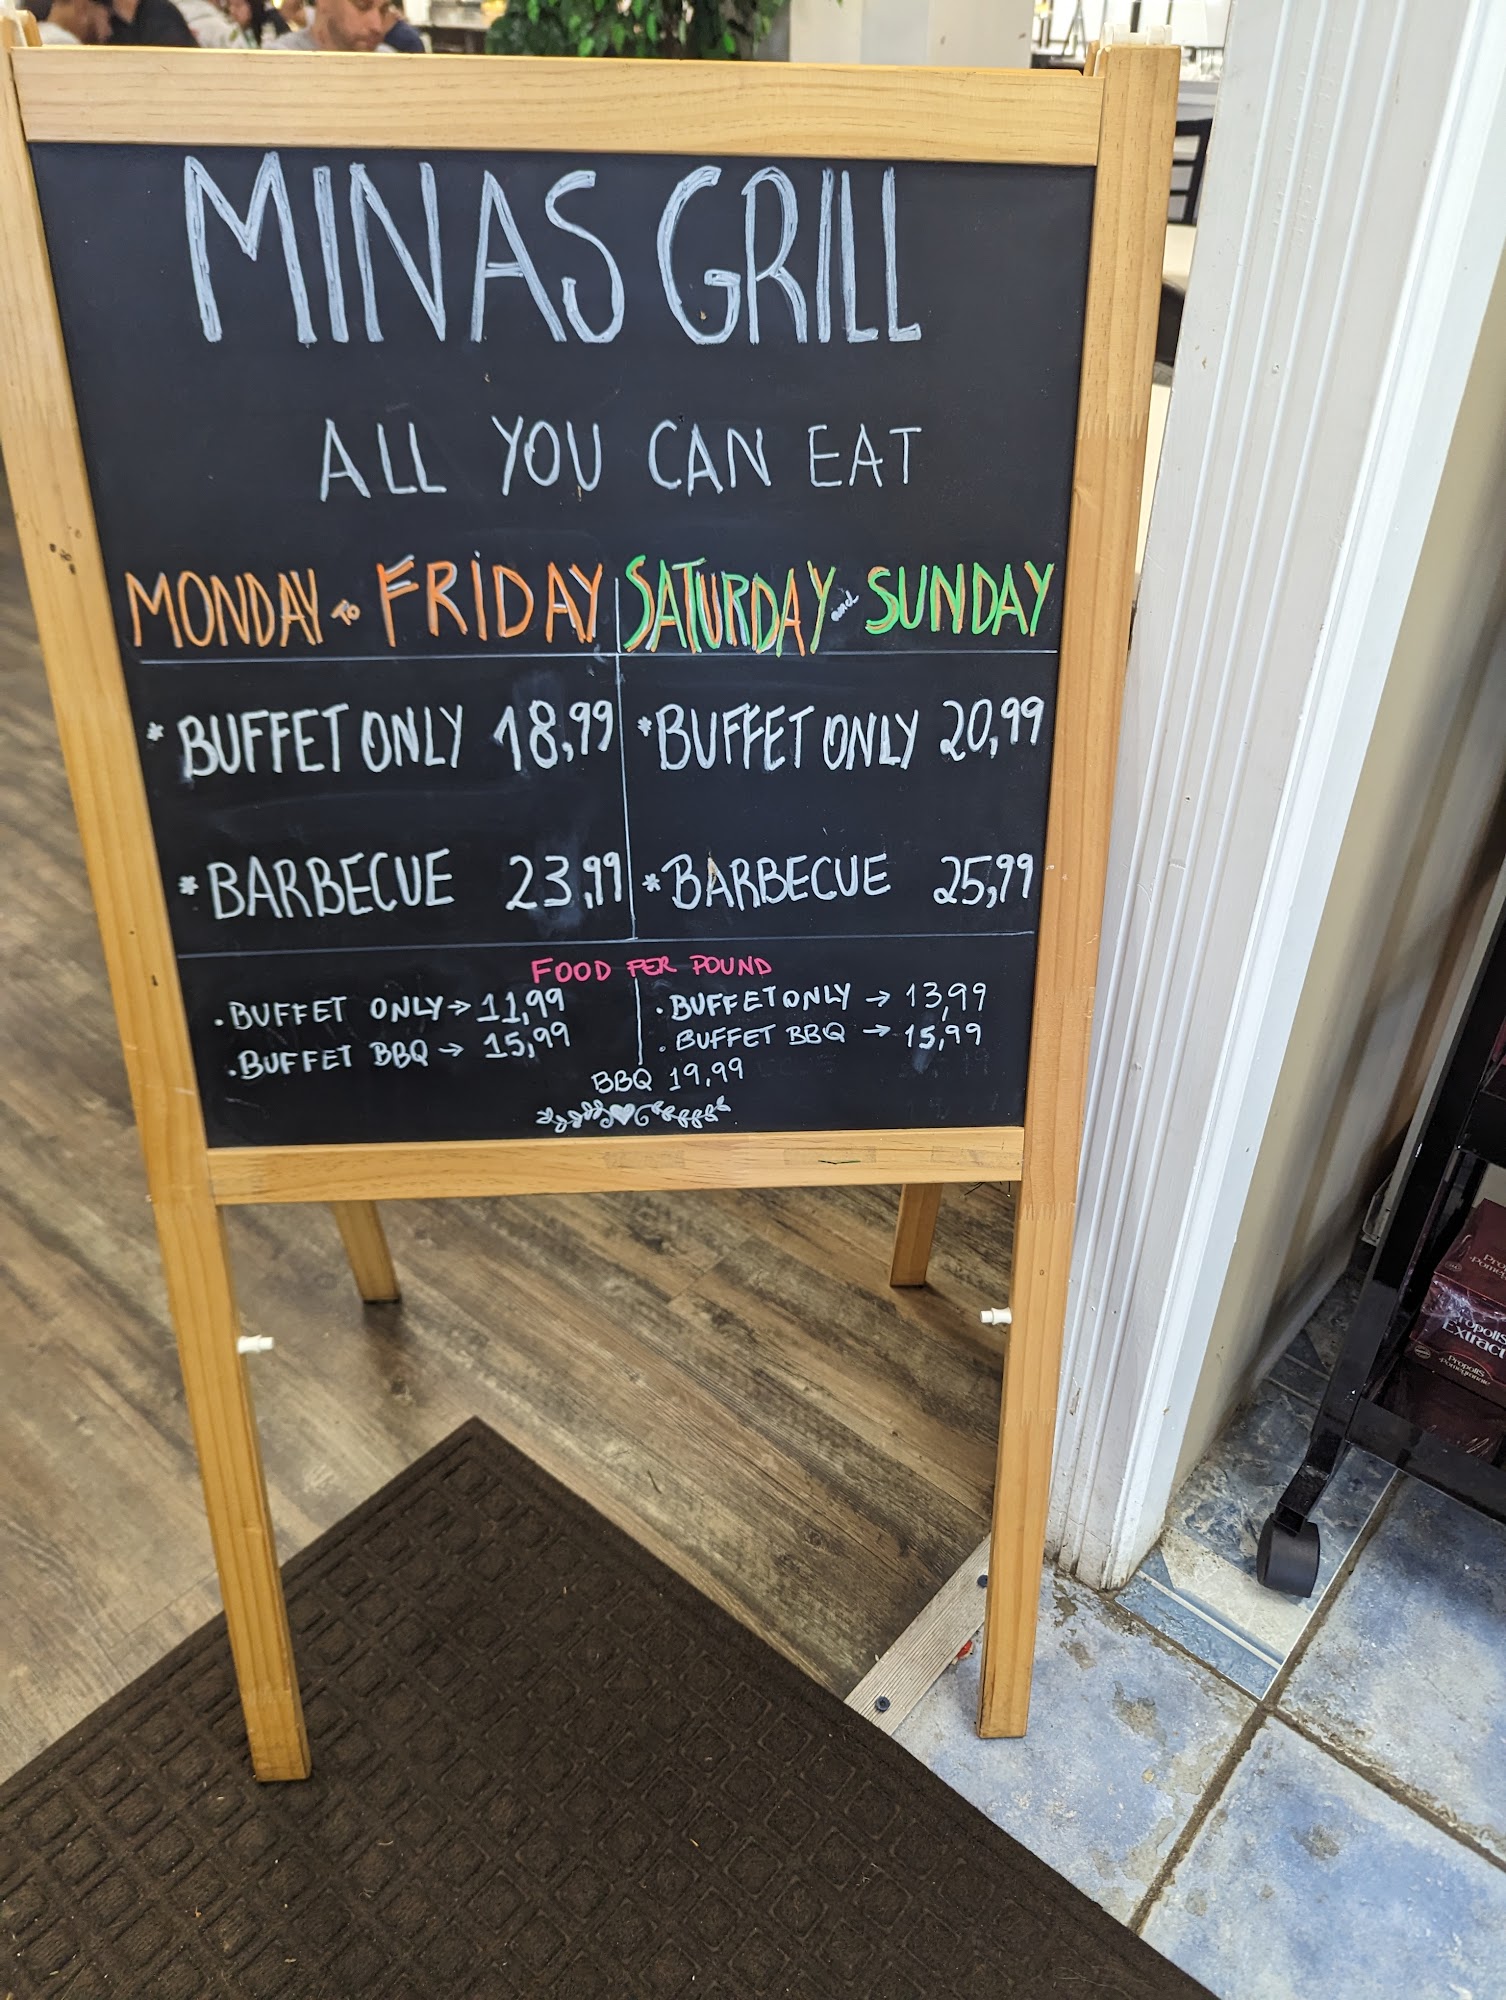 MINAS GRILL
ALL YOU CAN EAT
MONDAY TO FRIDAY
SATURDAY and SUNDAY
* BUFFET ONLY 18,99
* BUFFET ONLY 20,99
* BARBECUE 23,99
* BARBECUE 25,99
FOOD PER POUND
. BUFFET ONLY → 11,99
. BUFFET ONLY → 13,99
. BUFFET BBQ → 15,99
. BUFFET BBQ → 15,99
BBQ 19,99
Extract
Propolis